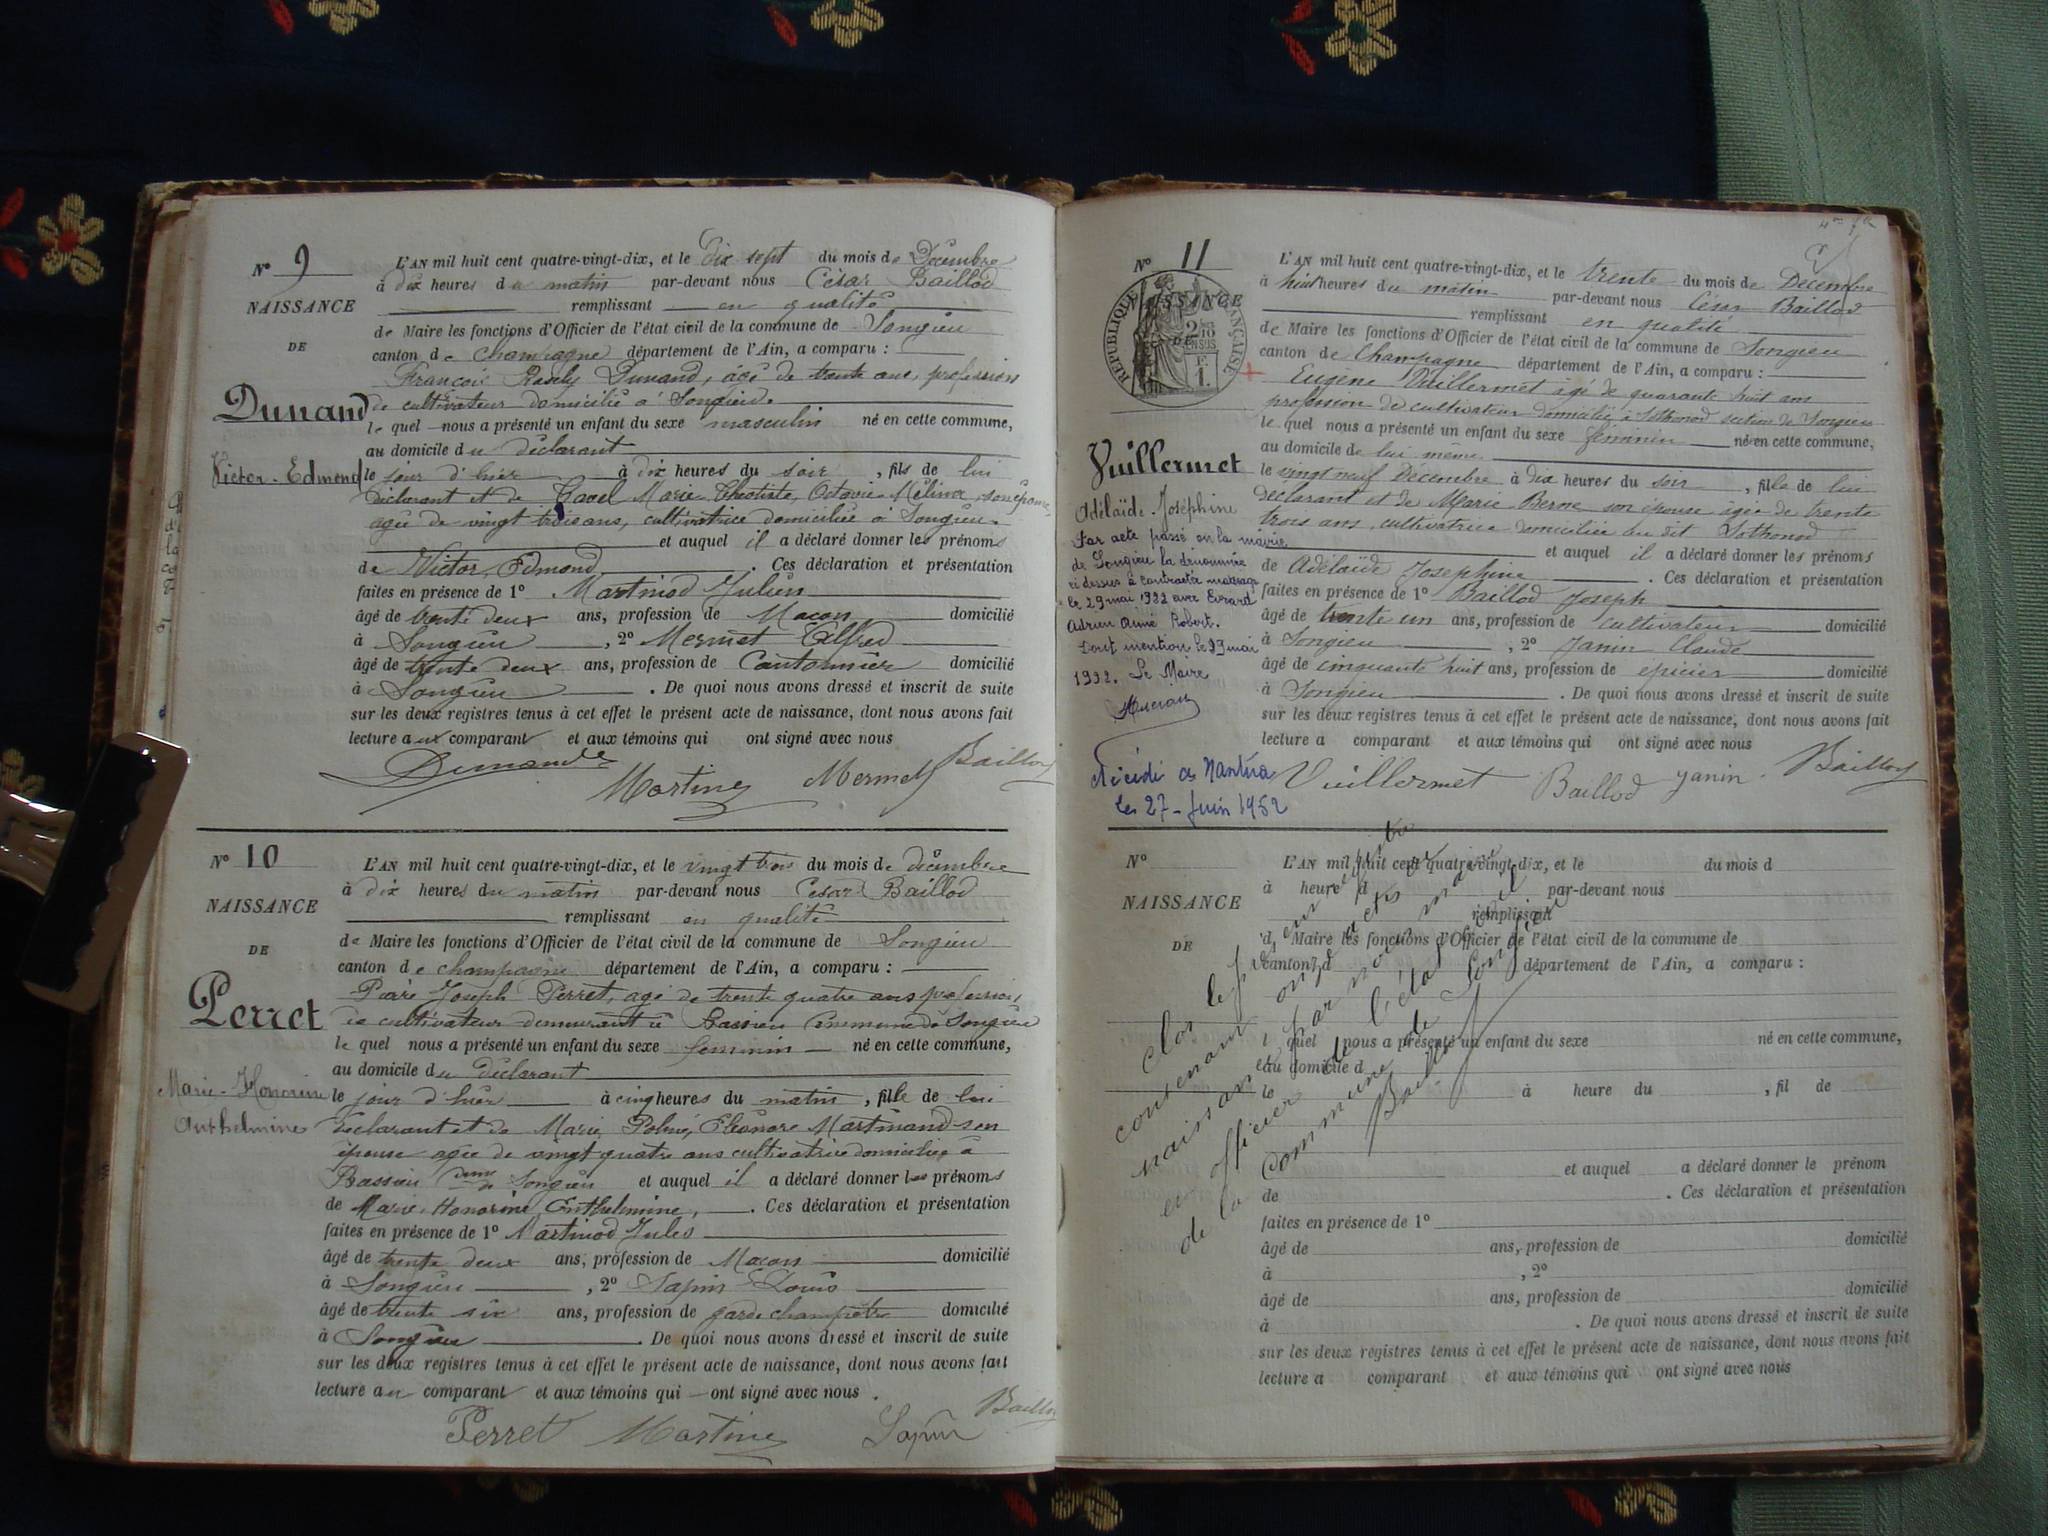 N° 9
NAISSANCE
DE
Dunand
Victor-Edmond
L'AN mil huit cent quatre-vingt-dix, et le Dix sept du mois de Décembre
à dix heures du matin par-devant nous César Baillod
remplissant en qualité
de Maire les fonctions d'Officier de l'état civil de la commune de Songieu
canton de Champagne département de l'Ain, a comparu :
François Dunand, âgé de trente ans, profession
de cultivateur domicilié à Songieu.
le quel nous a présenté un enfant du sexe masculin né en cette commune,
au domicile du déclarant
le jour d'hier à dix heures du soir, fils de lui
déclarant et de Cavel Marie Théotiste, Octavie Mélina, son épouse
agée de vingt trois ans, cultivatrice domiciliée à Songieu.
et auquel il a déclaré donner les prénoms
de Victor, Edmond. Ces déclaration et présentation
faites en présence de 1° Martinod Julien
âgé de trente deux ans, profession de Maçon domicilié
à Songieu, 2° Mermet Alfred
âgé de trente deux ans, profession de Cantonnier domicilié
à Songieu. De quoi nous avons dressé et inscrit de suite
sur les deux registres tenus à cet effet le présent acte de naissance, dont nous avons fait
lecture aux comparant et aux témoins qui ont signé avec nous
Dunand Martinod Mermet Baillod
N° 10
NAISSANCE
DE
Perret
Marie-Honorine
Anthelmine
L'AN mil huit cent quatre-vingt-dix, et le vingt trois du mois de décembre
à dix heures du matin par-devant nous César Baillod
remplissant en qualité
de Maire les fonctions d'Officier de l'état civil de la commune de Songieu
canton de Champagne département de l'Ain, a comparu :
Pierre Joseph Perret, agé de trente quatre ans profession
de cultivateur demeurant à Bassieu Commune de Songieu
le quel nous a présenté un enfant du sexe feminin né en cette commune,
au domicile du déclarant
le jour d'hier à cinq heures du matin, fille de lui
déclarant et de Marie, Eléonore Martinand son
épouse agée de vingt quatre ans cultivatrice domiciliée à
Bassieu Cne de Songieu et auquel il a déclaré donner les prénoms
de Marie, Honorine, Enthelmine,. Ces déclaration et présentation
faites en présence de 1° Martinod Jules
âgé de trente deux ans, profession de Maçon domicilié
à Songieu, 2° Sapin Louis
âgé de trente six ans, profession de garde champêtre domicilié
à Songieu. De quoi nous avons dressé et inscrit de suite
sur les deux registres tenus à cet effet le présent acte de naissance, dont nous avons fait
lecture au comparant et aux témoins qui ont signé avec nous.
Perret Martinod Sapin Baillod
N° 11
NAISSANCE
DE
RÉPUBLIQUE FRANÇAISE
Vuillermet
Adélaïde-Joséphine
Par acte passé en la mairie
de Songieu la dénommée
ci dessus a contracté mariage
le 29 mai 1922 avec Evrard
Adrien Aimé Robert.
Dont mention le 29 mai
1922. Le Maire
Décédée à Nantua
le 27-Juin 1952
L'AN mil huit cent quatre-vingt-dix, et le trente du mois de Décembre
à huit heures du matin par-devant nous César Baillod
remplissant en qualité
de Maire les fonctions d'Officier de l'état civil de la commune de Songieu
canton de Champagne département de l'Ain, a comparu :
Eugène Vuillermet agé de quarante huit ans
profession de cultivateur domicilié à Sothonod section de Songieu
le quel nous a présenté un enfant du sexe féminin né en cette commune,
au domicile de lui même
le vingt neuf Décembre à dix heures du soir, fille de lui
déclarant et de Marie Berne son épouse agée de trente
trois ans, cultivatrice domiciliée au dit Sothonod
et auquel il a déclaré donner les prénoms
de Adélaïde Joséphine. Ces déclaration et présentation
faites en présence de 1° Baillod Joseph
âgé de trente un ans, profession de cultivateur domicilié
à Songieu, 2° Janin Claude
âgé de cinquante huit ans, profession de épicier domicilié
à Songieu. De quoi nous avons dressé et inscrit de suite
sur les deux registres tenus à cet effet le présent acte de naissance, dont nous avons fait
lecture a comparant et aux témoins qui ont signé avec nous
Vuillermet Baillod Janin Baillod
N°
NAISSANCE
DE
L'AN mil huit cent quatre-vingt-dix, et le du mois d
à heure d par-devant nous
remplissant
d Maire les fonctions d'Officier de l'état civil de la commune de
canton d département de l'Ain, a comparu :
quel nous a présenté un enfant du sexe né en cette commune,
au domicile d
le à heure du, fil de
et auquel a déclaré donner le prénom
de. Ces déclaration et présentation
faites en présence de 1°
âgé de ans, profession de domicilié
à, 2°
âgé de ans, profession de domicilié
à. De quoi nous avons dressé et inscrit de suite
sur les deux registres tenus à cet effet le présent acte de naissance, dont nous avons fait
lecture a comparant et aux témoins qui ont signé avec nous
Clos le présent registre
contenant onze actes de
naissance par nous maire
et officier de l'état civil
de la commune de Songieu
Baillod